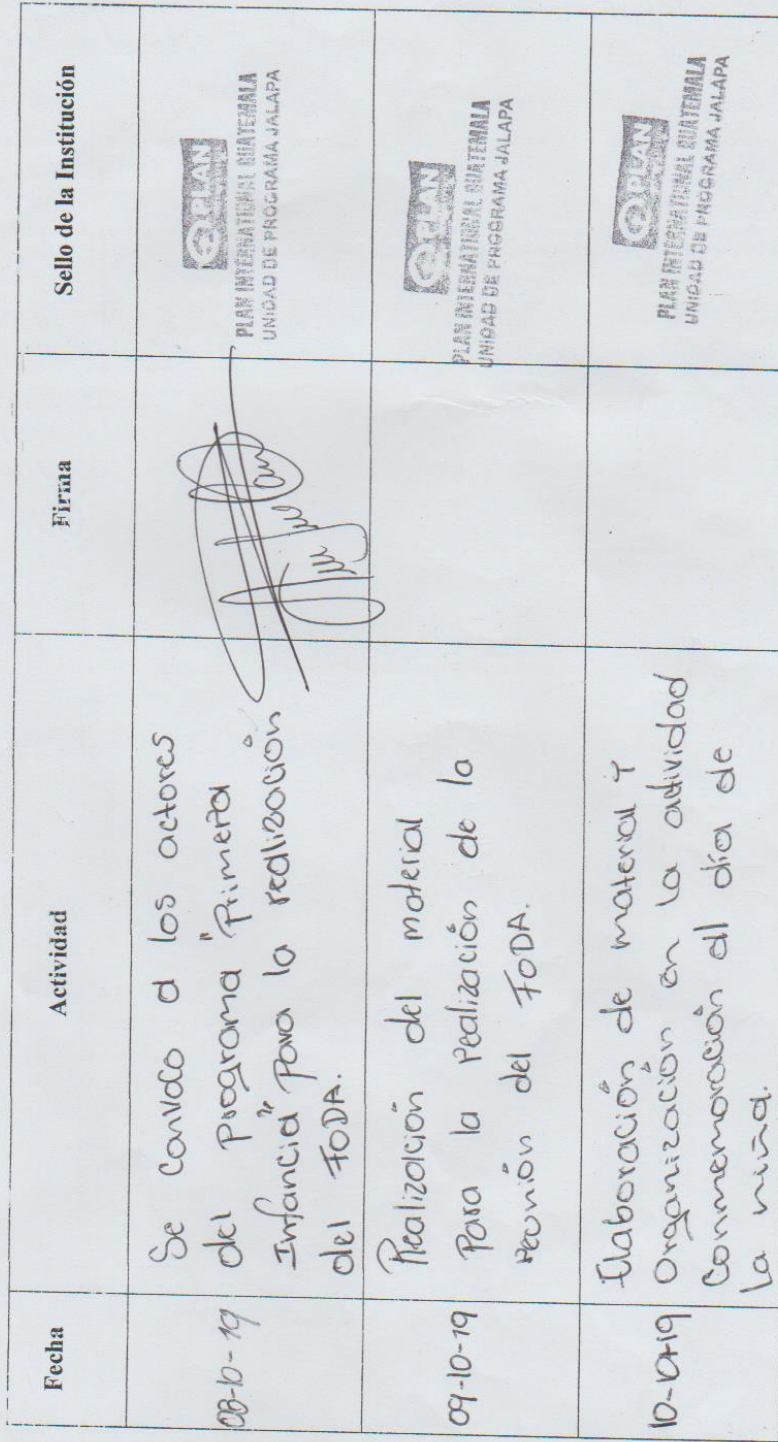 Fecha
Actividad
Firma
Sello de la Institución
08-10-19
Se Convoco a los actores
del programa "Primera
Infancia" para la realización
del FODA.
PLAN
PLAN INTERNATIONAL GUATEMALA
UNIDAD DE PROGRAMA JALAPA
09-10-19
Realización del material
Para la realización de la
reunión del FODA.
PLAN
PLAN INTERNATIONAL GUATEMALA
UNIDAD DE PROGRAMA JALAPA
10-10-19
Elaboración de material y
Organización en la actividad
Conmemoración al día de
la niña.
PLAN
PLAN INTERNATIONAL GUATEMALA
UNIDAD DE PROGRAMA JALAPA